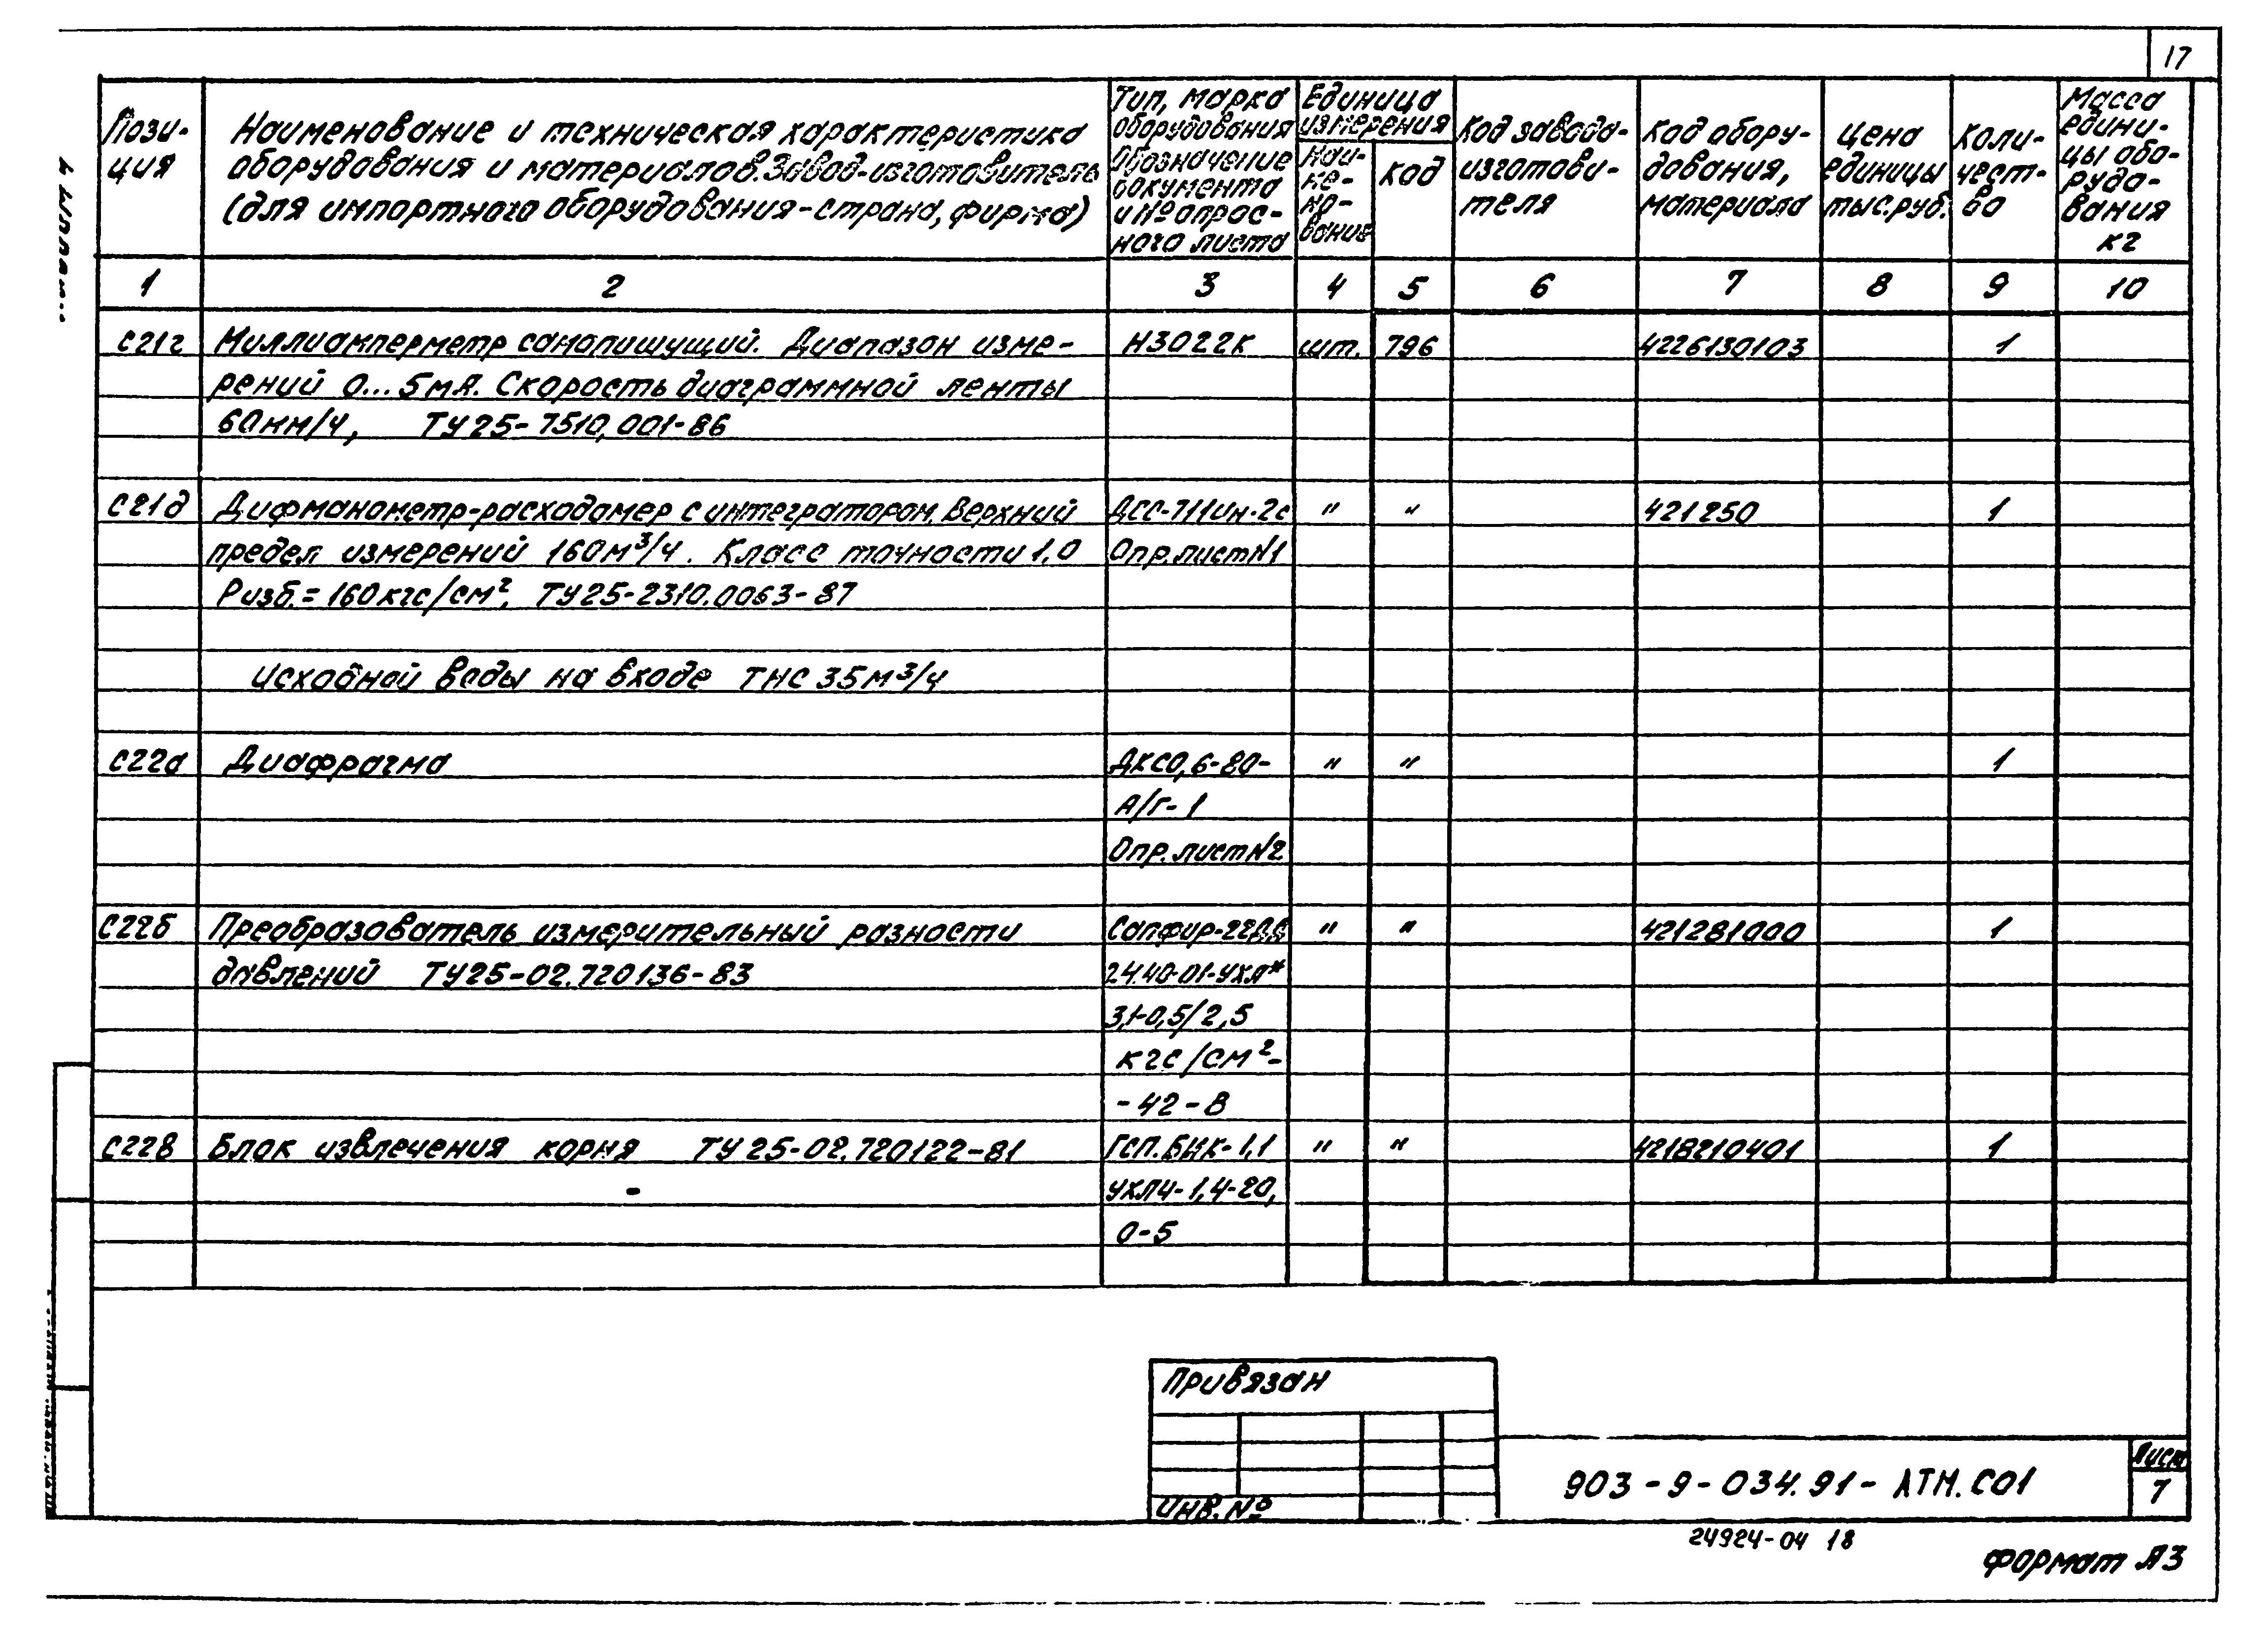 17
Пози-
ция
Наименование и техническая характеристика
оборудования и материалов. Завод-изготовитель
(для импортного оборудования-страна, фирма)
Тип, марка
оборудования
Обозначение
документа
и № опрос-
ного листа
Единица
измерения
Наи-
ме-
но-
вание
код
Код завода-
изготови-
теля
Код обору-
дования,
материала
Цена
единицы
тыс.руб.
Коли-
чест-
во
Масса
едини-
цы обо-
рудо-
вания
кг
1 2 3 4 5 6 7 8 9 10
С21г Миллиамперметр самопишущий. Диапазон изме- Н3022К шт. 796 4226130103 1
рений 0...5мА. Скорость диаграммной ленты
60мм/ч, ТУ25-7510.001-86
С21д Дифманометр-расходомер с интегратором. Верхний ДСС-711Ин-2с " " 421250 1
предел измерений 160м³/ч. Класс точности 1,0 Опр.лист N1
Ризб.=160кгс/см². ТУ25-2310.0063-87
Исходной воды на входе ТНС 35м³/ч
С22а Диафрагма ДКС0,6-80- " " 1
А/Г-1
Опр.лист N2
С22б Преобразователь измерительный разности Сапфир-22ДД " " 421281000 1
давлений ТУ25-02.720136-83 2440-01-УХЛ*
3,1-0,5/2,5
кгс/см²-
-42-В
С22в Блок извлечения корня ТУ25-02.720122-81 ГСП.БИК-1,1 " " 4218210401 1
УХЛ4-1,4-20,
0-5
Привязан
Инв. №
903-9-034.91-АТМ.С01
Лист
7
24924-04 18
Формат А3